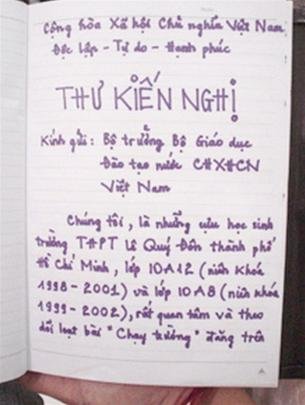 Cộng hòa Xã hội Chủ nghĩa Việt Nam
Độc lập - Tự do - Hạnh phúc
THƯ KIẾN NGHỊ
Kính gửi: Bộ trưởng Bộ Giáo dục
Đào tạo nước CHXHCN
Việt Nam
Chúng tôi, là những cựu học sinh
trường THPT Lê Quý Đôn thành phố
Hồ Chí Minh, lớp 10A12 (niên khóa
1998 - 2001) và lớp 10A8 (niên khóa
1999 - 2002), rất quan tâm và theo
dõi loạt bài "Chạy trường" đăng trên